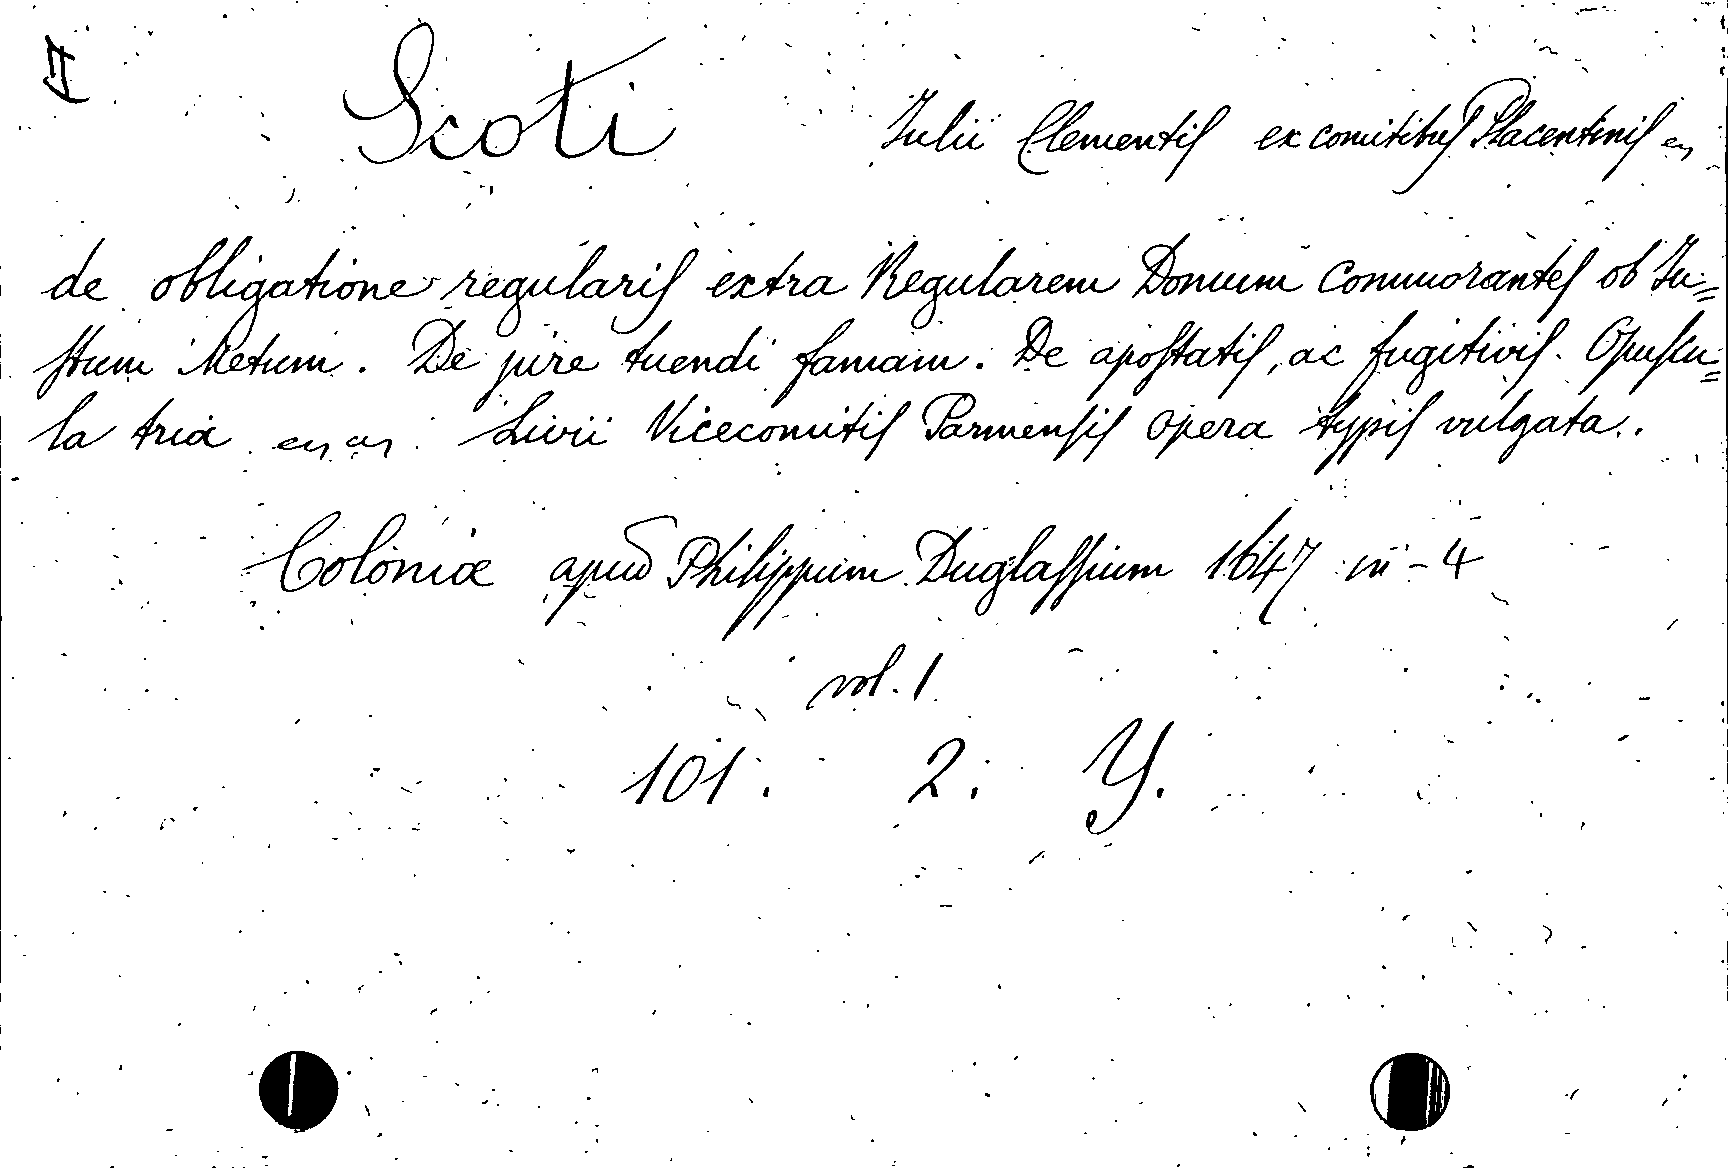 II
Scoti Iulii Clementis ex comitibus Placentinis
de obligatione regularis extra Regularem Domum Commorantes ob Iu=
stum Metum. De jure tuendi famam. De apostatis, ac fugitivis. Opuscu=
la tria Livii Vicecomitis Parmensis opera typis vulgata.
Coloniæ apud Philippum Duglassium 1647 in-4
vol. 1
101. 2. Y.